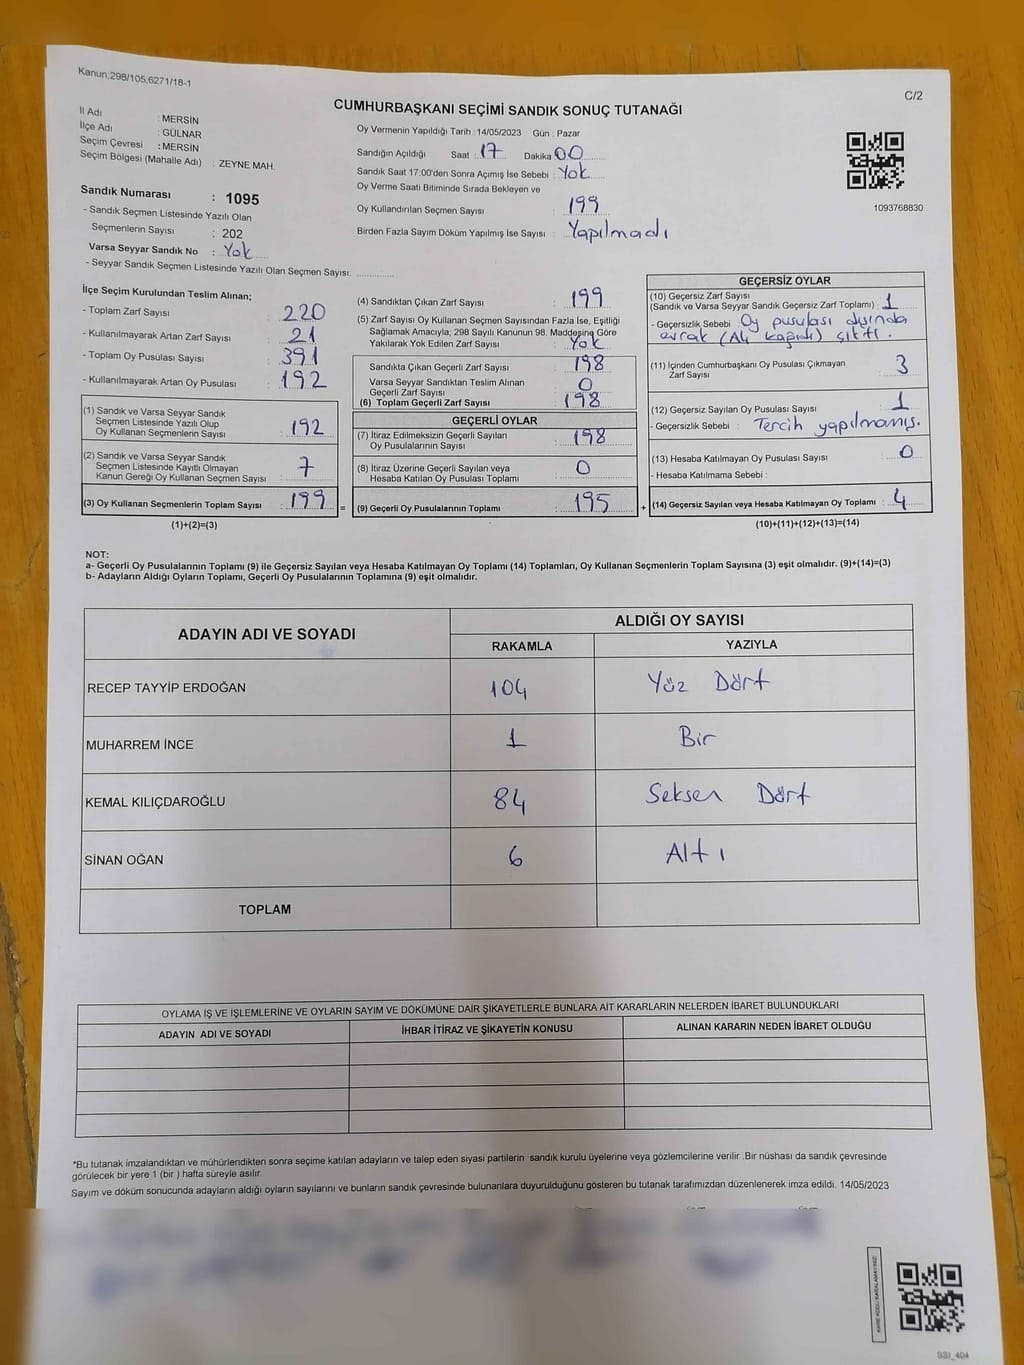 Kanun;298/105;6271/18-1
C/2
CUMHURBAŞKANI SEÇİMİ SANDIK SONUÇ TUTANAĞI
İl Adı : MERSİN
İlçe Adı : GÜLNAR
Seçim Çevresi : MERSİN
Seçim Bölgesi (Mahalle Adı) : ZEYNE MAH.
Sandık Numarası : 1095
- Sandık Seçmen Listesinde Yazılı Olan
Seçmenlerin Sayısı : 202
Varsa Seyyar Sandık No : Yok
- Seyyar Sandık Seçmen Listesinde Yazılı Olan Seçmen Sayısı:
Oy Vermenin Yapıldığı Tarih : 14/05/2023 Gün : Pazar
Sandığın Açıldığı Saat : 17 Dakika 00
Sandık Saat 17:00'den Sonra Açımış İse Sebebi : Yok
Oy Verme Saati Bitiminde Sırada Bekleyen ve
Oy Kullandırılan Seçmen Sayısı : 199
Birden Fazla Sayım Döküm Yapılmış İse Sayısı : Yapılmadı
1093768830
İlçe Seçim Kurulundan Teslim Alınan;
- Toplam Zarf Sayısı : 220
- Kullanılmayarak Artan Zarf Sayısı : 21
- Toplam Oy Pusulası Sayısı : 391
- Kullanılmayarak Artan Oy Pusulası : 192
(1) Sandık ve Varsa Seyyar Sandık
Seçmen Listesinde Yazılı Olup
Oy Kullanan Seçmenlerin Sayısı : 192
(2) Sandık ve Varsa Seyyar Sandık
Seçmen Listesinde Kayıtlı Olmayan
Kanun Gereği Oy Kullanan Seçmen Sayısı : 7
(3) Oy Kullanan Seçmenlerin Toplam Sayısı : 199 =
(1)+(2)=(3)
(4) Sandıktan Çıkan Zarf Sayısı : 199
(5) Zarf Sayısı Oy Kullanan Seçmen Sayısından Fazla İse, Eşitliği
Sağlamak Amacıyla; 298 Sayılı Kanunun 98. Maddesine Göre
Yakılarak Yok Edilen Zarf Sayısı : Yok
Sandıkta Çıkan Geçerli Zarf Sayısı : 198
Varsa Seyyar Sandıktan Teslim Alınan
Geçerli Zarf Sayısı : 0
(6) Toplam Geçerli Zarf Sayısı : 198
GEÇERLİ OYLAR
(7) İtiraz Edilmeksizin Geçerli Sayılan
Oy Pusulasının Sayısı : 198
(8) İtiraz Üzerine Geçerli Sayılan veya
Hesaba Katılan Oy Pusulası Toplamı : 0
(9) Geçerli Oy Pusulalarının Toplamı : 195 +
GEÇERSİZ OYLAR
(10) Geçersiz Zarf Sayısı
(Sandık ve Varsa Seyyar Sandık Geçersiz Zarf Toplamı) : 1
- Geçersizlik Sebebi : Oy pusulası dışında
evrak çıktı.
(11) İçinden Cumhurbaşkanı Oy Pusulası Çıkmayan
Zarf Sayısı : 3
(12) Geçersiz Sayılan Oy Pusulası Sayısı : 1
- Geçersizlik Sebebi : Tercih yapılmamış.
(13) Hesaba Katılmayan Oy Pusulası Sayısı : 0
- Hesaba Katılmama Sebebi :
(14) Geçersiz Sayılan veya Hesaba Katılmayan Oy Toplamı : 4
(10)+(11)+(12)+(13)=(14)
NOT:
a- Geçerli Oy Pusulalarının Toplamı (9) ile Geçersiz Sayılan veya Hesaba Katılmayan Oy Toplamı (14) Toplamları, Oy Kullanan Seçmenlerin Toplam Sayısına (3) eşit olmalıdır. (9)+(14)=(3)
b- Adayların Aldığı Oyların Toplamı, Geçerli Oy Pusulalarının Toplamına (9) eşit olmalıdır.
ADAYIN ADI VE SOYADI
ALDIĞI OY SAYISI
RAKAMLA YAZIYLA
RECEP TAYYİP ERDOĞAN 104 Yüz Dört
MUHARREM İNCE 1 Bir
KEMAL KILIÇDAROĞLU 84 Seksen Dört
SİNAN OĞAN 6 Altı
TOPLAM
OYLAMA İŞ VE İŞLEMLERİNE VE OYLARIN SAYIM VE DÖKÜMÜNE DAİR ŞİKAYETLERLE BUNLARA AİT KARARLARIN NELERDEN İBARET BULUNDUKLARI
ADAYIN ADI VE SOYADI İHBAR İTİRAZ VE ŞİKAYETİN KONUSU ALINAN KARARIN NEDEN İBARET OLDUĞU
*Bu tutanak imzalandıktan ve mühürlendikten sonra seçime katılan adayların ve talep eden siyasi partilerin sandık kurulu üyelerine veya gözlemcilerine verilir .Bir nüshası da sandık çevresinde
görülecek bir yere 1 (bir ) hafta süreyle asılır.
Sayım ve döküm sonucunda adayların aldığı oyların sayılarını ve bunların sandık çevresinde bulunanlara duyurulduğunu gösteren bu tutanak tarafımızdan düzenlenerek imza edildi. 14/05/2023
SSI_404